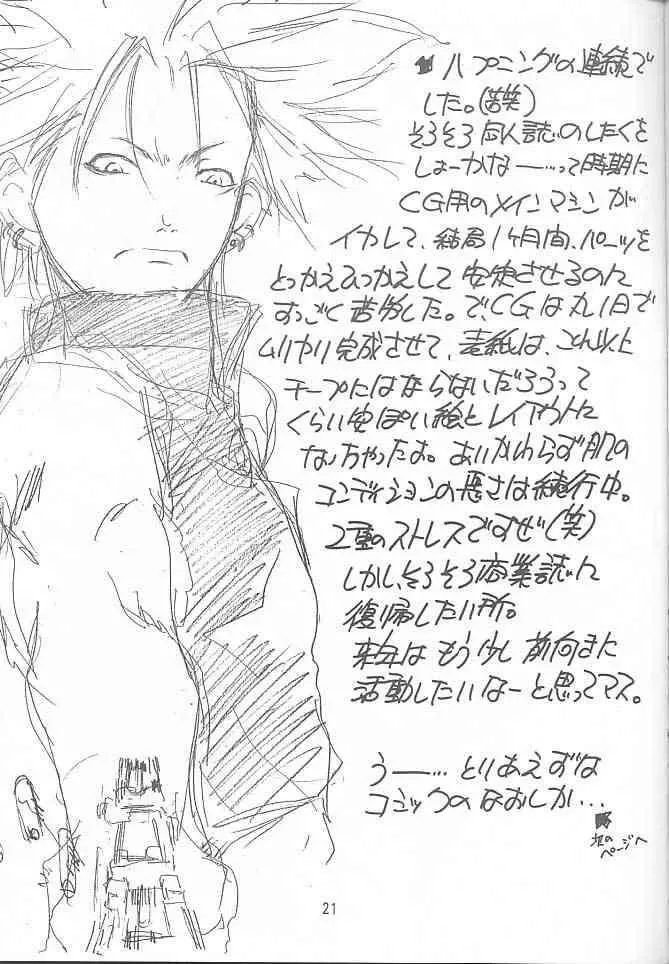 ハプニングの連続で
した。(苦笑)
そろそろ同人誌のしたくを
しょーかなー…って時期に
CG用のメインマシンが
イカレて、結局1ヶ月間、パーツを
とっかえひっかえして安定させるのに
すっごく苦労した。で、CGは丸1日で
ムリヤリ完成させて、表紙は、これ以上
チープにはならないだろうって
くらい安っぽい絵とレイアウトに
なっちゃったよ。あいかわらず肌の
コンディションの悪さは続行中。
2重のストレスですぜ(笑)
しかし、そろそろ商業誌に
復帰したい所。
来年はもう少し前向きに
活動したいなーと思ってマス。
うー…とりあえずは
コミックのなおしか…
次の
ページへ
21